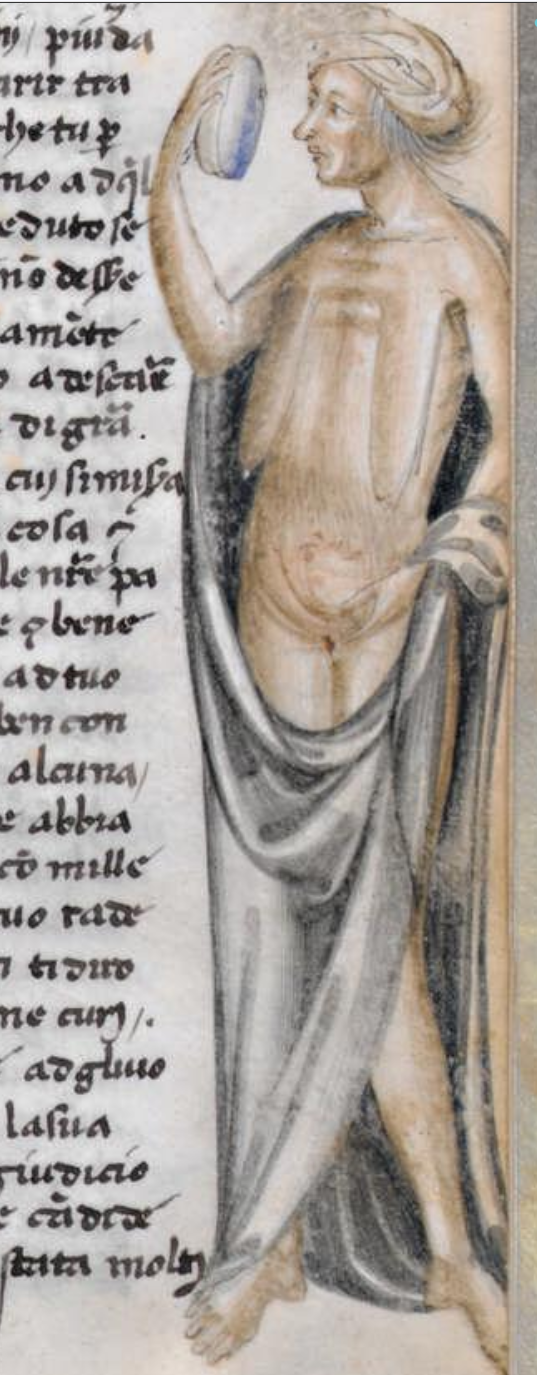 piu da
rir tra
che tu ꝑ
no ad ql
eduto se
no desse
amēte
o adesciuē
digrā.
cui simisa
cosa ⁊
le nrē pa
e ꝙ bene
ad tuo
ben con
alcuna /
e abbia
cō mille
uo rade
n ti diro
me curi /.
adgluio
la sua
giudicio
e cādide
stata molti